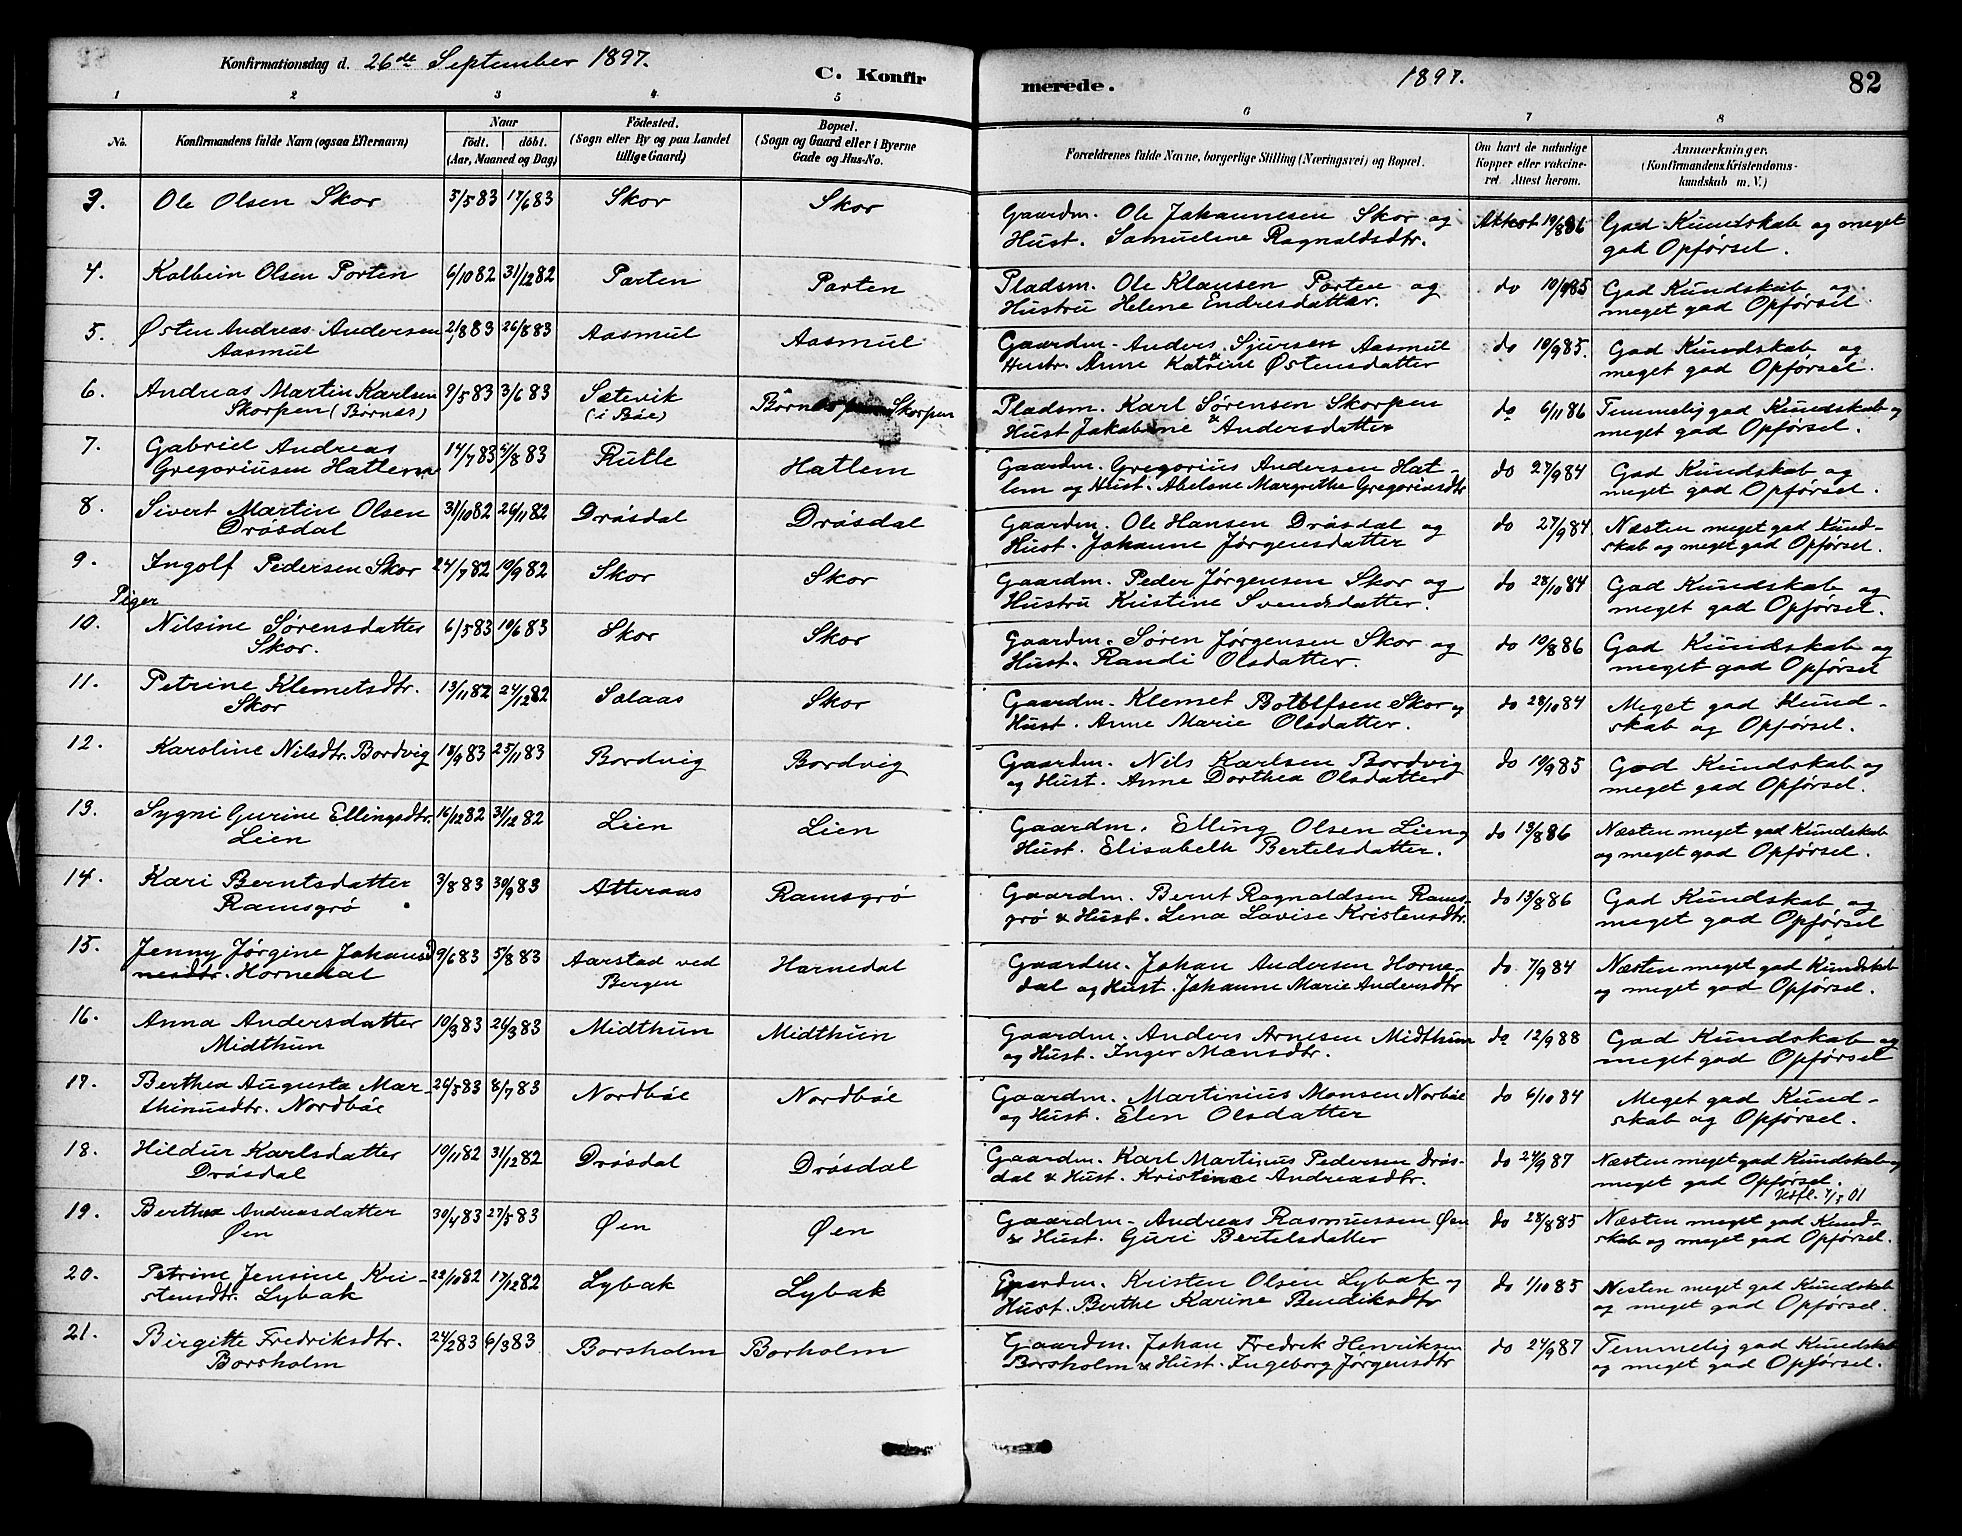 Konfirmationsdag d. 26de September 1897.
C. Konfir
merede.
1897.
82
1 2 3 4 5 6 7 8
No.
Konfirmandens fulde Navn (ogsaa Efternavn)
Naar
födt. döbt.
(Aar, Maaned og Dag)
Födested.
(Sogn eller By og paa Landet
tillige Gaard)
Bopæl.
(Sogn og Gaard eller i Byerne
Gade og Hus-No.
Forældrenes fulde Navne, borgerlige Stilling (Næringsvei) og Bopæl.
Om havt de naturlige
Kopper eller vakcine-
ret. Attest herom.
Anmærkninger.
(Konfirmandens Kristendoms-
kundskab m. V.)
3. Ole Olsen Skor 3/5 83 17/6 83 Skor Skor Gaardm. Ole Johannesen Skor og Attest 10/8 86 God Kundskab og meget
Hust. Samueline Ragnaldsdtr. god Opførsel.
4. Kolbein Olsen Porten 6/10 82 31/12 82 Porten Porten Pladsm. Ole Klausen Porten og do 10/9 85 God Kundskab og
Hustru Helene Endresdatter. meget god Opførsel
5. Østen Andreas Andersen 2/8 83 26/8 83 Aasmul Aasmul Gaardm. Anders Sjursen Aasmul do 10/9 85. God Kundskab og
Aasmul Hustr. Anne Katrine Østensdatter meget god Opførsel.
6. Andreas Martin Karlsen 9/5 83 3/6 83 Sætevik Børnes Skorpen Pladsm. Karl Sørensen Skorpen do 6/11 86 Temmelig god Kundskab og
Skorpen (Børnæs) (i Bøe) Hust Jakobine Andersdatter meget god Opførsel.
7. Gabriel Andreas 14/7 83 5/8 83 Rutle Hatlem Gaardm. Gregorius Andersen Hat- do 27/9 84 God Kundskab og
Gregoriusen Hatlem lem og Hust. Abelone Margrethe Gregoriusdtr meget god Opførsel.
8. Sivert Martin Olsen 31/10 82 26/11 82 Drøsdal Drøsdal Gaardm. Ole Hansen Drøsdal og do 27/9 84 Næsten meget god Kund-
Drøsdal Hust. Johanne Jørgensdatter skab og meget god Opførsel.
9. Ingolf Pedersen Skor 24/7 82 10/9 82 Skor Skor Gaardm. Peder Jørgensen Skor og do 28/10 84 God Kundskab og
Hustru Kristine Svendsdatter. meget god Opførsel.
Piger
10. Nilsine Sørensdatter 6/5 83 10/6 83 Skor Skor Gaardm. Søren Jørgensen Skor og do 10/8 86 God Kundskab og
Skor. Hust. Randi Olsdatter. meget god Opførsel
11. Petrine Klemetsdtr. 13/11 82 24/12 82 Solaas Skor Gaardm. Klemet Botolfsen Skor og do 28/10 84 Meget god Kund-
Skor Hust. Anne Marie Olsdatter. skab og Opførsel.
12. Karoline Nilsdtr. Bordvig 18/9 83 25/11 83 Bordvig Bordvig Gaardm. Nils Karlsen Bordvig do 10/9 85 God Kundskab og
og Hust. Anne Dorthea Olsdatter meget god Opførsel.
13. Sygni Gurine Ellingsdtr. 16/12 82 31/12 82 Lien Lien Gaardm. Elling Olsen Lien og do 13/8 86 Næsten meget god Kundskab
Lien Hust. Elisabeth Bertelsdatter. og meget god Opførsel.
14. Kari Berntsdatter 3/8 83 30/9 83 Atteraas Ramsgrø Gaardm. Bernt Ragnaldsen Rams- do 13/8 86 God Kundskab og
Ramsgrø grø & Hust. Lena Lovise Kristensdtr. meget god Opførsel
15. Jenny Jørgine Johansd 9/6 83 5/8 83 Aarstad ved Hornedal Gaardm. Johan Andersen Horne- do 7/9 84 Næsten meget god Kundskab
nesdtr. Hornedal Bergen dal og Hust. Johanne Marie Andersdtr og meget god Opførsel.
16. Anna Andersdatter 10/3 83 26/3 83 Midthun Midthun Gaardm. Anders Arnesen Midthun do 12/9 88 God Kundskab og
Midthun og Hust. Inger Monsdtr. meget god Opførsel
17. Berthea Augusta Mar- 26/5 83 8/7 83 Nordbøe Nordbøe Gaardm. Martinius Monsen Norbøe do 6/10 84 Meget god Kund-
thinusdtr. Nordbøe og Hust. Elen Olsdatter skab og Opførsel.
18. Hildur Karlsdatter 10/11 82 31/12 82 Drøsdal Drøsdal Gaardm. Karl Martinus Pedersen Drøs- do 24/9 87 Næsten meget god Kundskab og
Drøsdal dal & Hust. Kristine Andreasdtr. meget god Opførsel.
Utfl. 01
19. Berthe Andreasdatter 30/4 83 27/5 83 Øen Øen Gaardm. Andreas Rasmussen Øen do 28/8 85 Næsten meget god Kund-
Øen & Hust. Guri Bertelsdatter skab og meget god Opførsel.
20. Petrine Jensine Kri- 22/10 82 17/12 82 Lybak Lybak Gaardm. Kristen Olsen Lybak og do 1/10 85 Nesten meget god Kundskab
stensdtr. Lybak Hust. Berthe Karine Bendiksdtr og meget god Opførsel.
21. Birgitte Fredriksdtr. 24/2 83 6/3 83 Borsholm Borholm Gaardm. Johan Fredrik Henriksen do 24/9 87 Temmelig god Kundskab
Borsholm Borsholm & Hust. Ingeborg Jørgensdtr og meget god Opførsel.